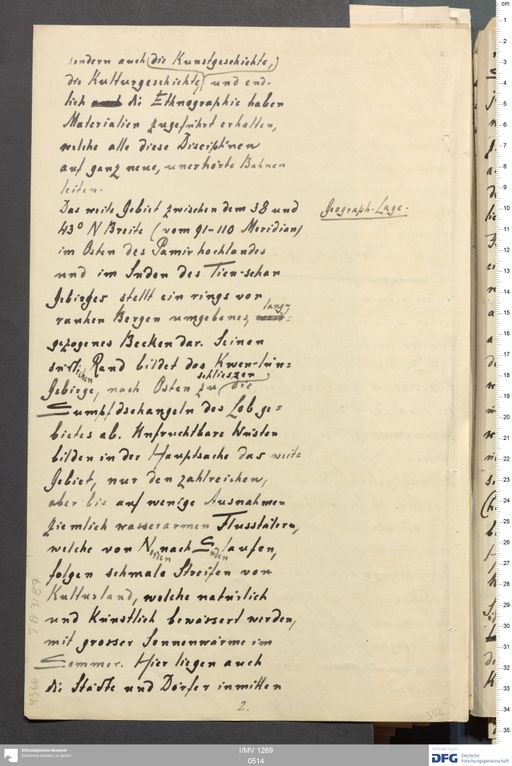 sondern auch (die Kunstgeschichte,)
die Kulturgeschichte, und end-
lich die Ethnographie haben
Materialien zugeführt erhalten,
welche alle diese Disciplinen
auf ganz neue, unerhörte Bahnen
leiten.
Das weite Gebiet zwischen dem 38 und
Geograph. Lage.
43° N Breite (vom 91-110 Meridian)
im Osten des Pamirhochlandes
und im Süden des Tien-schan
Gebirges stellt ein rings von
rauhen Bergen umgebenes, lang=
gezogenes Becken dar. Seinen
südlichen Rand bildet das Kwen-lün-
Gebirge, nach Osten zu schliessen die
Sumpfdschangeln des Lobge=
bietes ab. Unfruchtbare Wüsten
bilden in der Hauptsache das weite
Gebiet, nur den zahlreichen,
aber bis auf wenige Ausnahmen
ziemlich wasserarmen Flusstälern,
welche von Norden nach Süden laufen,
folgen schmale Streifen von
Kulturland, welche natürlich
und künstlich bewässert werden,
mit grosser Sonnenwärme im
Sommer. Hier liegen auch
die Städte und Dörfer inmitten
2.
TA 3187
4366
I/MV 1269
0514
Ethnologisches Museum
Staatliche Museen zu Berlin
DFG
Deutsche
Forschungsgemeinschaft